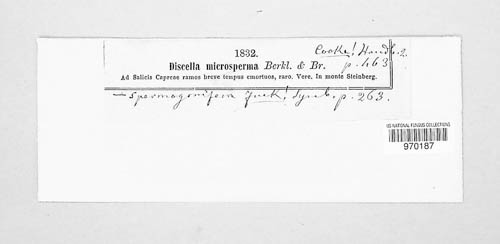 1832.
Cooke! Handb. 2.
Discella microsperma Berkl. & Br.
p. 463
Ad Salicis Capreae ramos breve tempus emortuos, raro. Vere. In monte Steinberg.
— Spermogonifera Fuck! Symb. p. 263.
US NATIONAL FUNGUS COLLECTIONS
970187